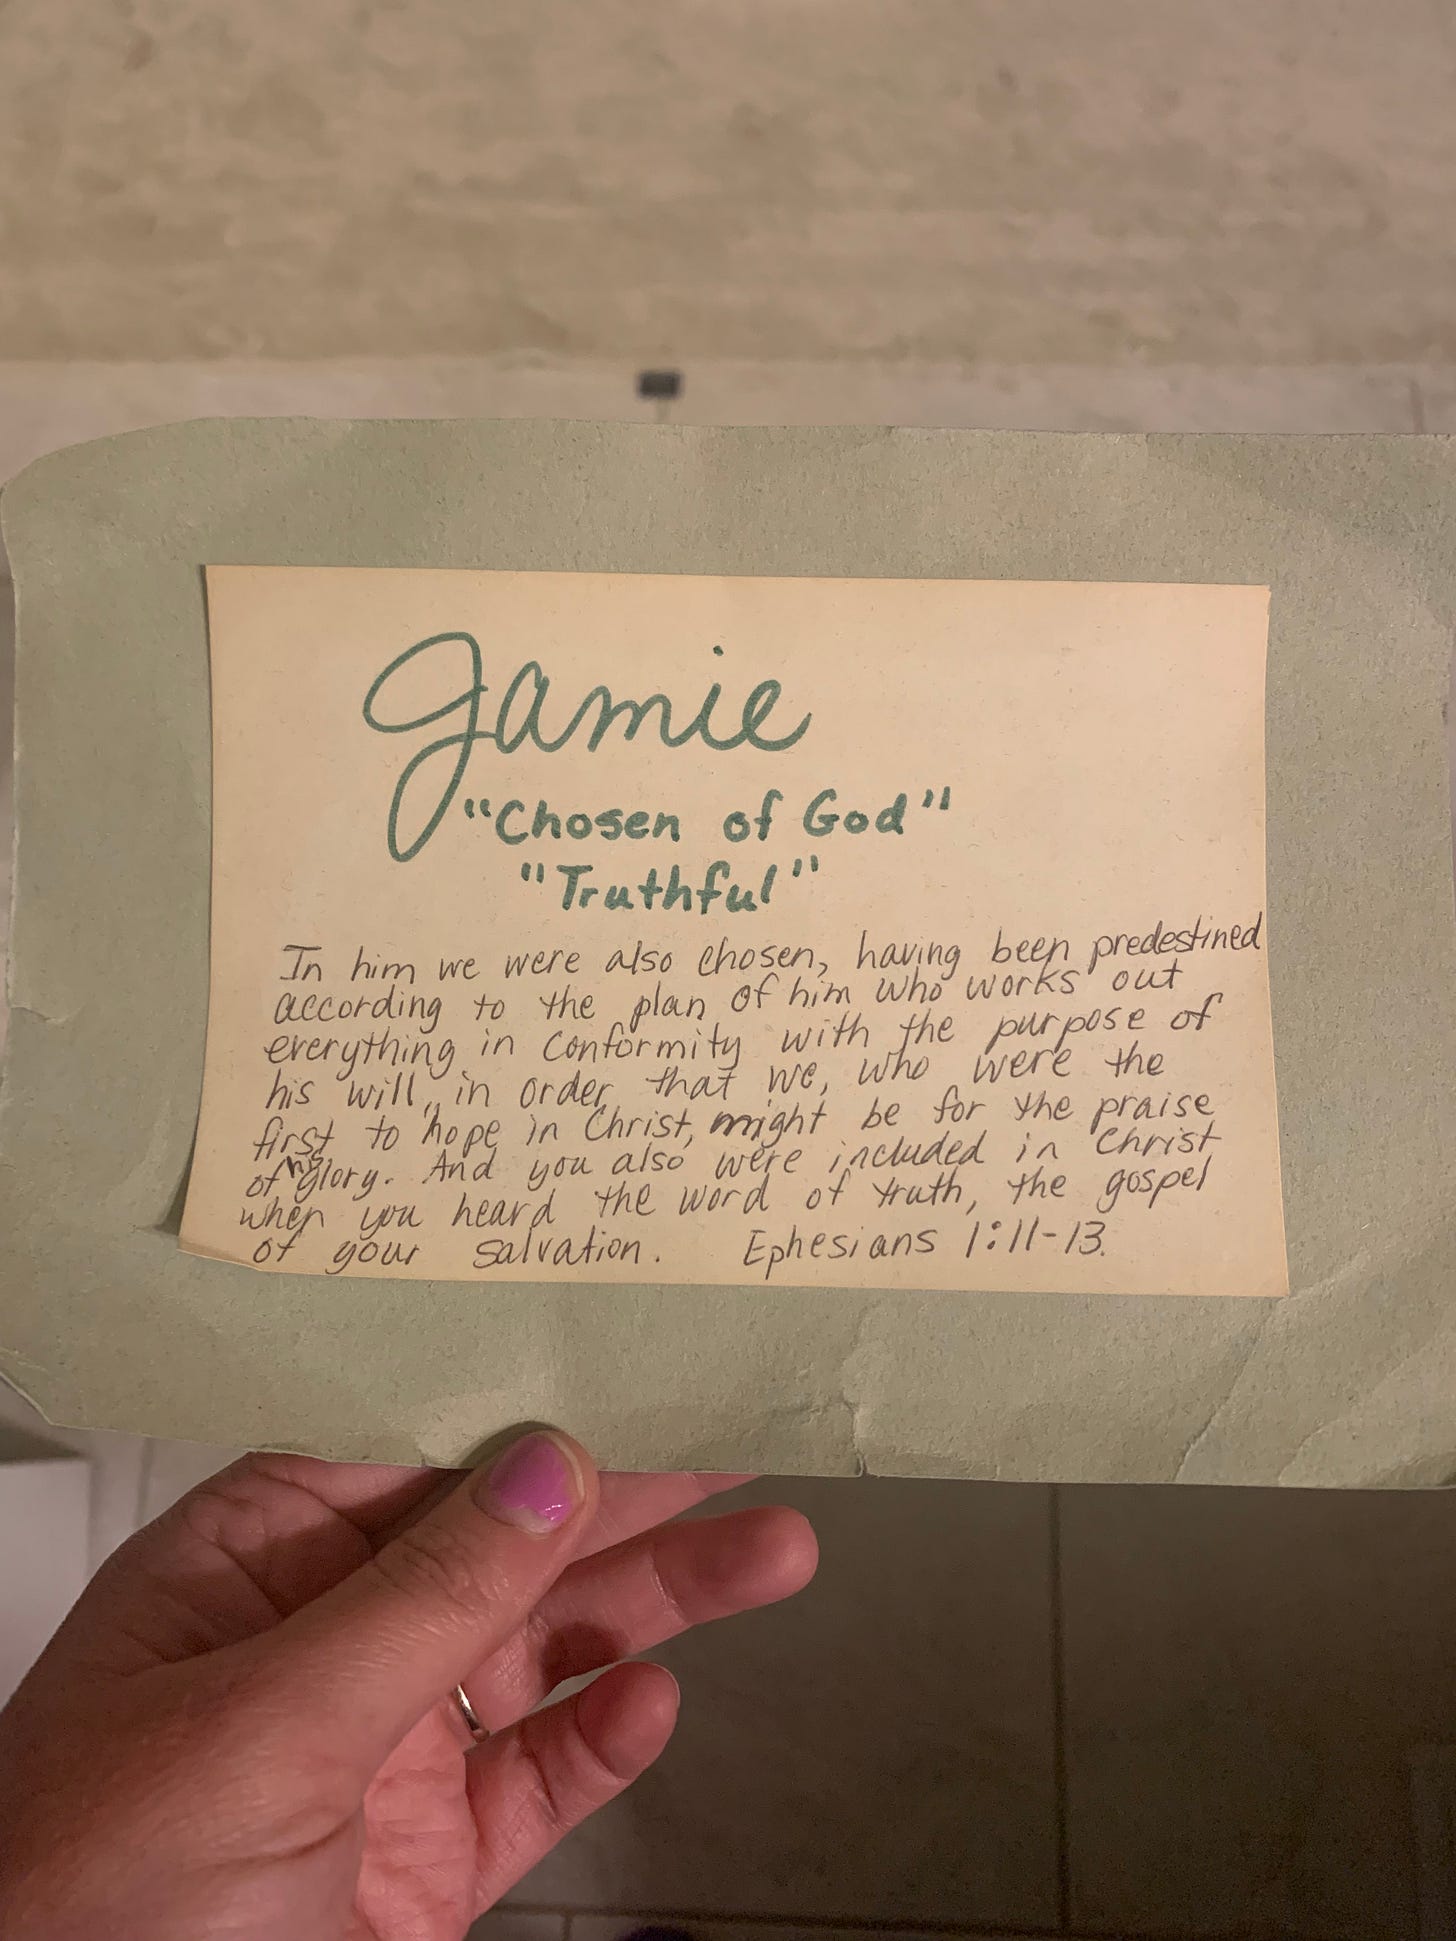 Jamie
"Chosen of God"
"Truthful"
In him we were also chosen, having been predestined
according to the plan of him who works out
everything in conformity with the purpose of
his will, in order that we, who were the
first to hope in Christ, might be for the praise
of his glory. And you also were included in Christ
when you heard the word of truth, the gospel
of your salvation. Ephesians 1:11-13.